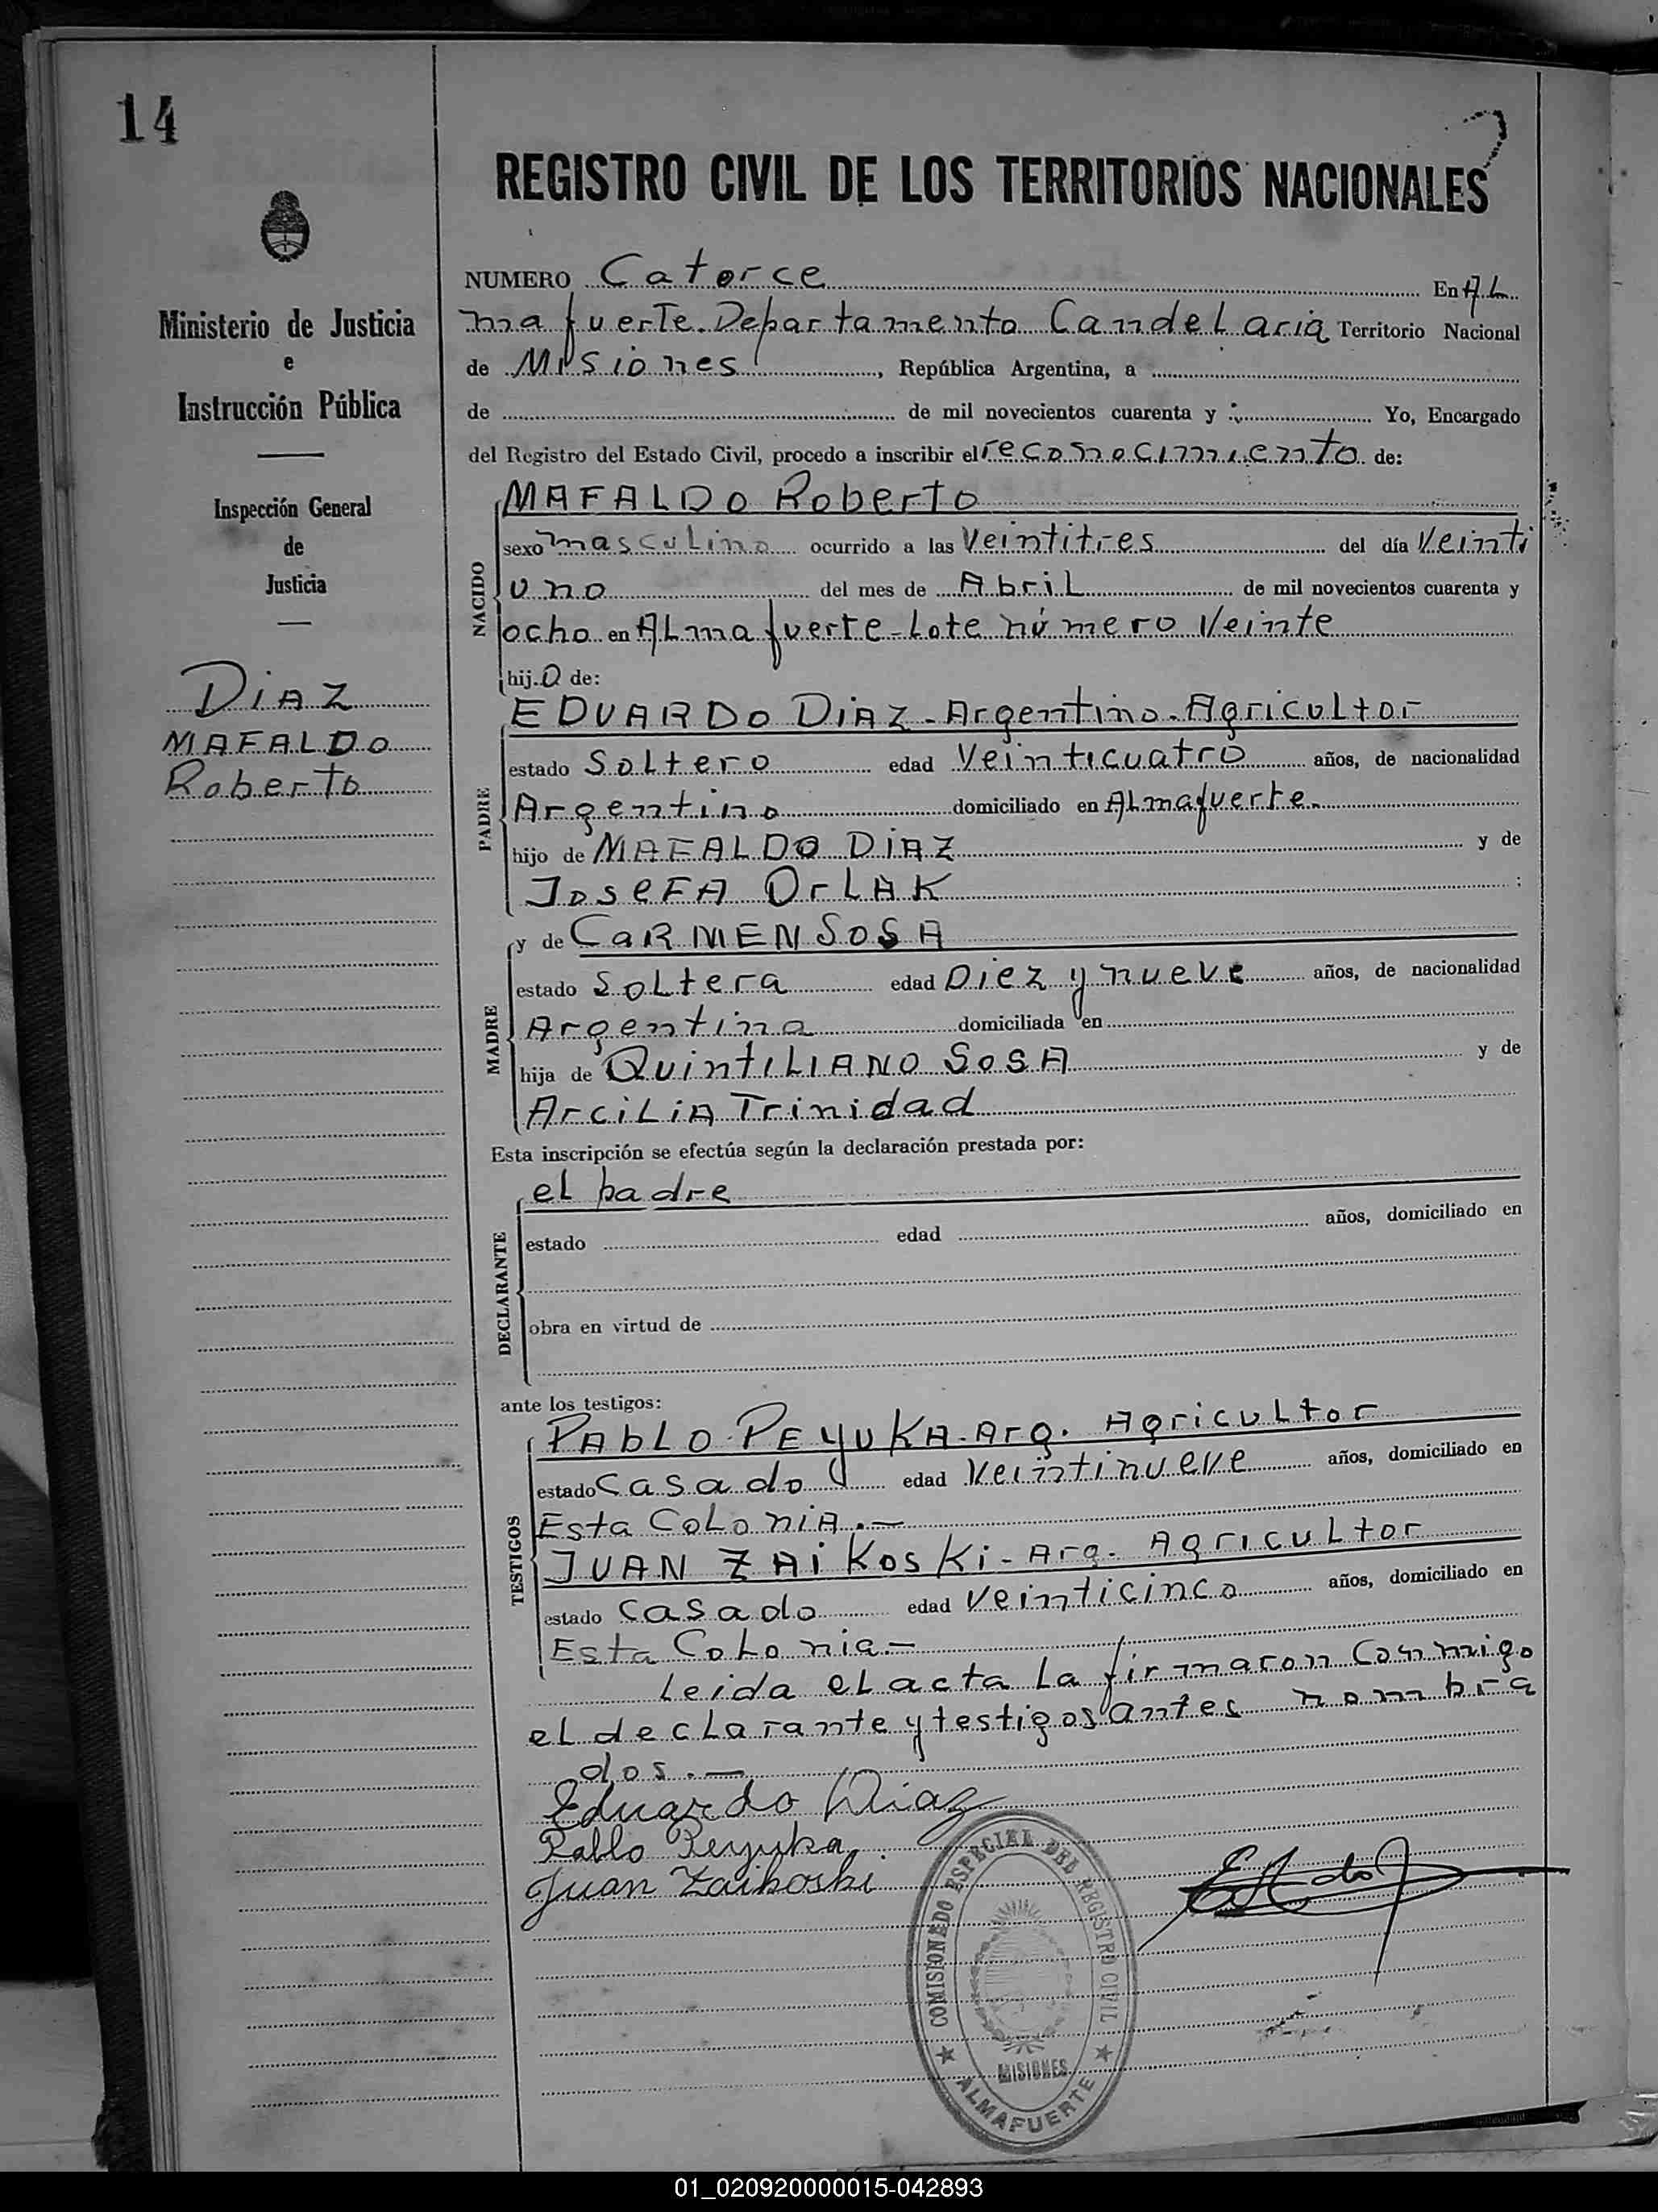 14
REGISTRO CIVIL DE LOS TERRITORIOS NACIONALES
Ministerio de Justicia
e
Instrucción Pública
Inspección General
de
Justicia
DiAZ
MAFALDO
Roberto
NUMERO Catorce En AL
mafuerte. Departamento CandeLaria Territorio Nacional
de Misiones, República Argentina, a
de de mil novecientos cuarenta y Yo, Encargado
del Registro del Estado Civil, procedo a inscribir el reconocimiento de:
NACIDO
MAFALDO Roberto
sexo mascuLino ocurrido a las Veintitres del día Veinti
uno del mes de AbriL de mil novecientos cuarenta y
ocho en ALmafuerte-Lote número Veinte
hijo de:
PADRE
EDUARDO DiAZ-Argentino-AgricuLtor
estado SoLtero edad Veinticuatro años, de nacionalidad
Argentino domiciliado en ALmafuerte.
hijo de MAFALDO DiAZ y de
JoseFA OrLAK ;
MADRE
y de CaRMEN SoSA
estado SoLtera edad Diez y nueve años, de nacionalidad
Argentina domiciliada en
hija de QuintiLIANO SoSA y de
ArciLiA Trinidad
Esta inscripción se efectúa según la declaración prestada por:
DECLARANTE
eL padre
estado edad años, domiciliado en
obra en virtud de
ante los testigos:
TESTIGOS
PAbLO PEYUKA-Arg. AgricuLtor
estado Casado edad Veintinueve años, domiciliado en
Esta CoLoniA.—
JUAN ZAiKosKi-Arg. AgricuLtor
estado Casado edad Veinticinco años, domiciliado en
Esta CoLonia.—
Leida eL acta La firmaron Conmigo
eL decLarante y testigos antes nombra
dos.—
Eduardo Diaz
Pablo Peyuka
Juan Zaikoski
COMISIONADO ESPECIAL DEL REGISTRO CIVIL
MISIONES
ALMAFUERTE
01_020920000015-042893